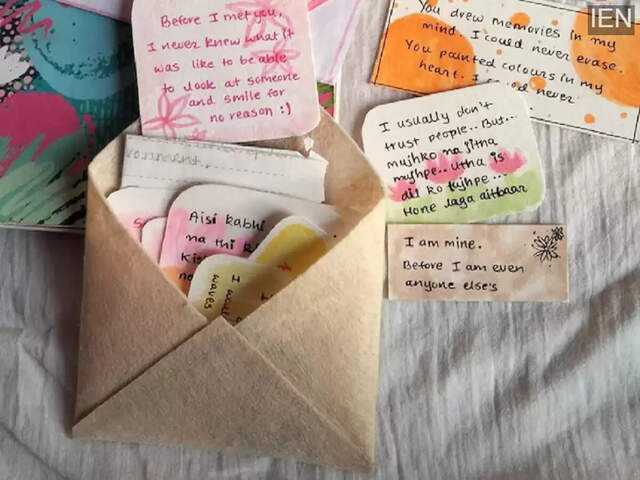 IEN
Before I met you,
I never knew what it
was like to be able
to look at someone
and smile for
no reason :)
You drew memories in my
mind. I could never erase.
You painted colours in my
heart. I could never
I usually don't
trust people.. But...
mujhko na jitna
mujhpe.. utna is
dil ko tujhpe...
Hone laga aitbaar
I am mine.
Before I am even
anyone else's
Aisi kabhi
na thi
no
waves